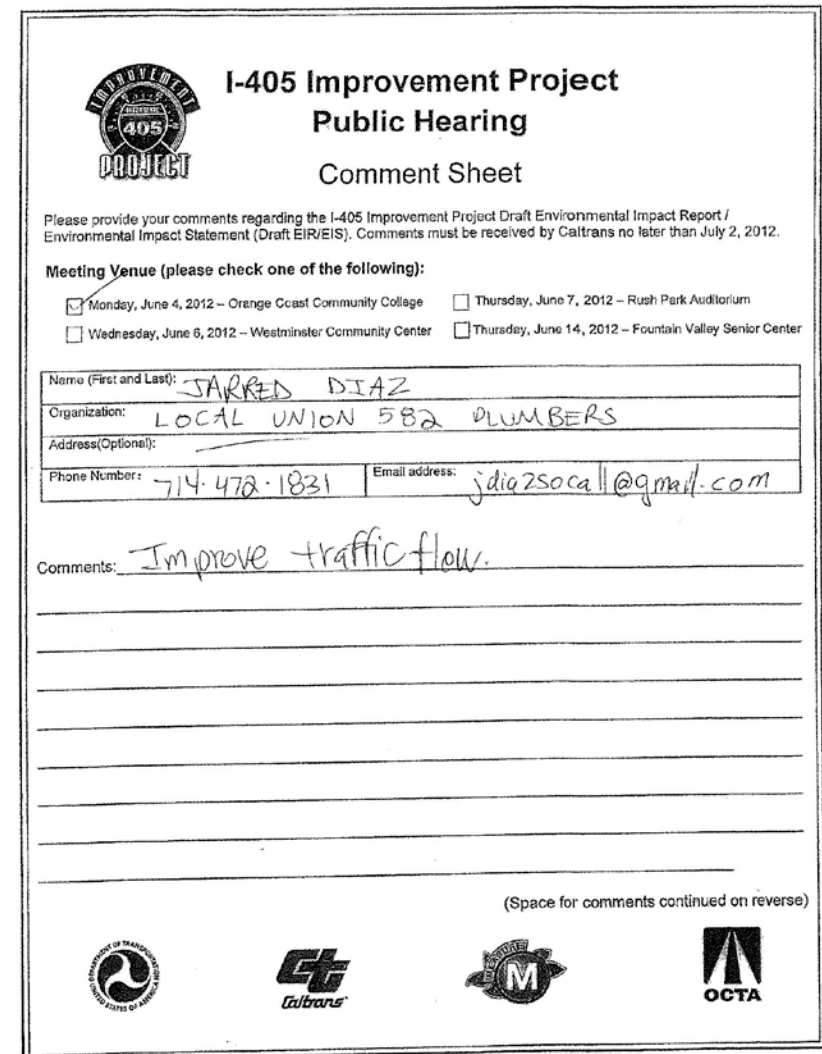 IMPROVEMENT
405
PROJECT
I-405 Improvement Project
Public Hearing
Comment Sheet
Please provide your comments regarding the I-405 Improvement Project Draft Environmental Impact Report /
Environmental Impact Statement (Draft EIR/EIS). Comments must be received by Caltrans no later than July 2, 2012.
Meeting Venue (please check one of the following):
Monday, June 4, 2012 – Orange Coast Community College
Thursday, June 7, 2012 – Rush Park Auditorium
Wednesday, June 6, 2012 – Westminster Community Center
Thursday, June 14, 2012 – Fountain Valley Senior Center
Name (First and Last): JARRED DIAZ
Organization: LOCAL UNION 582 PLUMBERS
Address(Optional):
Phone Number: 714·472·1831
Email address: jdiazsocall@gmail.com
Comments: Improve traffic flow.
(Space for comments continued on reverse)
DEPARTMENT OF TRANSPORTATION
UNITED STATES OF AMERICA
Caltrans
MEASURE
M
OCTA